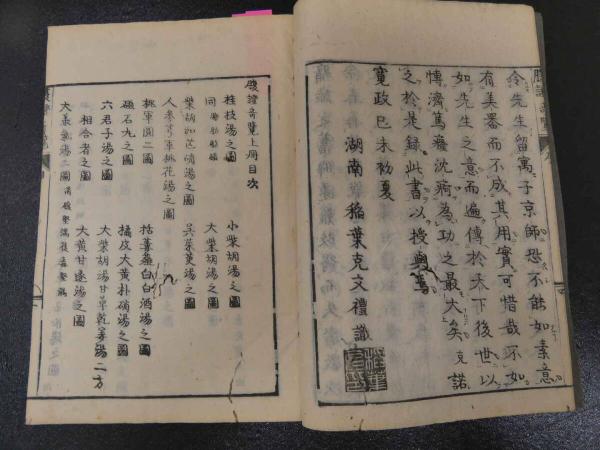 令先生留寓于京師恐不能如素意
有美器而不成其用實可惜哉不如
如先生之意而遍傳於天下後世以
博濟篤癃沈痾為功之最大矣克諾
之於是録此書以授與焉
寛政己未初夏
湖南 稲葉克文禮識
腹證奇覽上册目次
桂枝湯之圖 小柴胡湯之圖
同 大柴胡湯之圖
柴胡加芒硝湯之圖 呉茱萸湯之圖
桃花湯之圖
桃軍圓二圖 括蔞薤白白酒湯之圖
石丸之圖 橘皮大黄朴硝湯之圖
六君子湯之圖 大柴胡湯甘草乾姜湯二方
相合者之圖 大黄甘遂湯之圖
大承氣湯之圖